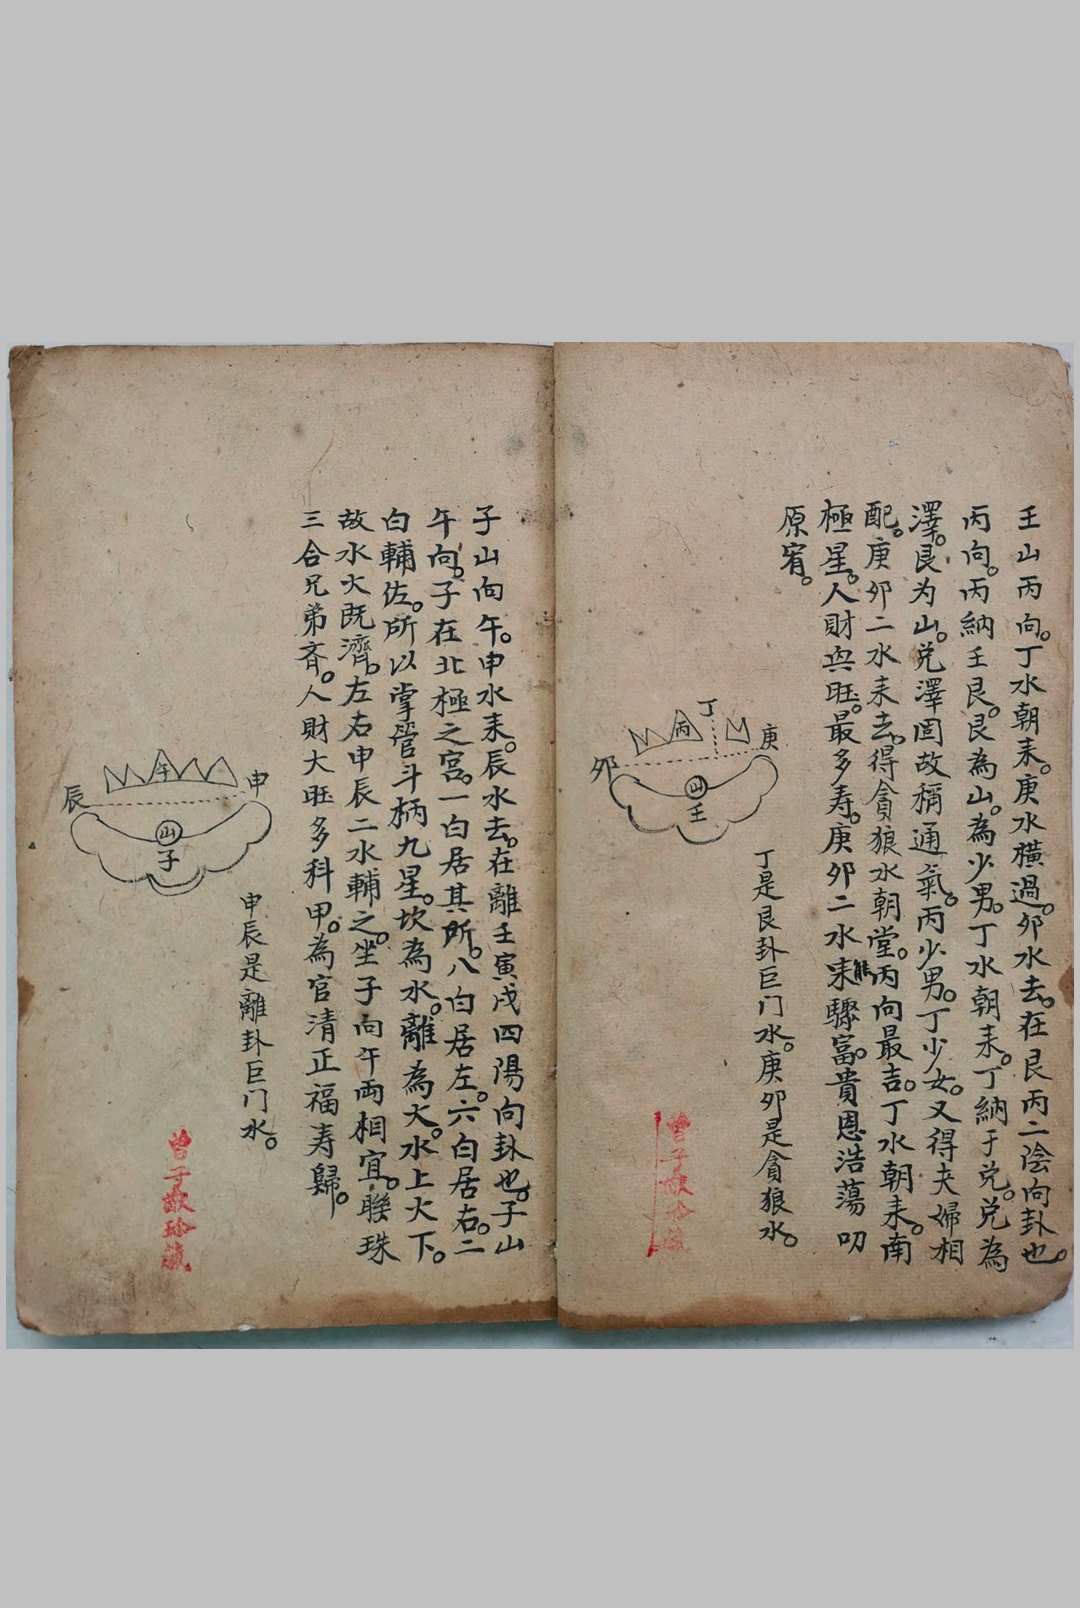 壬山丙向。丁水朝来。庚水横過。夘水去。在艮丙二陰向卦也。
丙向。丙納壬艮。艮為山。為少男。丁水朝来。丁納于兑。兑為
澤。艮为山。兑澤固故稱通氣。丙少男。丁少女。又得夫婦相
配。庚夘二水来去。得貪狼水朝堂。丙向最吉。丁水朝来。南
極星。人財与旺。最多寿。庚夘二水来能驟富。貴恩浩蕩叨
原宥。
丁
丙
庚
夘
山
壬
丁是艮卦巨门水。庚夘是貪狼水。
曾子敬珍藏
子山向午。申水来。辰水去。在離壬寅戌四陽向卦也。子山
午向。子在北極之宫。一白居其所。八白居左。六白居右。二
白輔佐。所以掌管斗柄九星。坎為水。離為火。水上火下。
故水火既濟。左右申辰二水輔之。坐子向午両相宜。聯珠
三合兄弟斉。人財大旺多科甲。為官清正福寿歸。
午
申
辰
山
子
申辰是離卦巨门水。
曾子敬珍藏